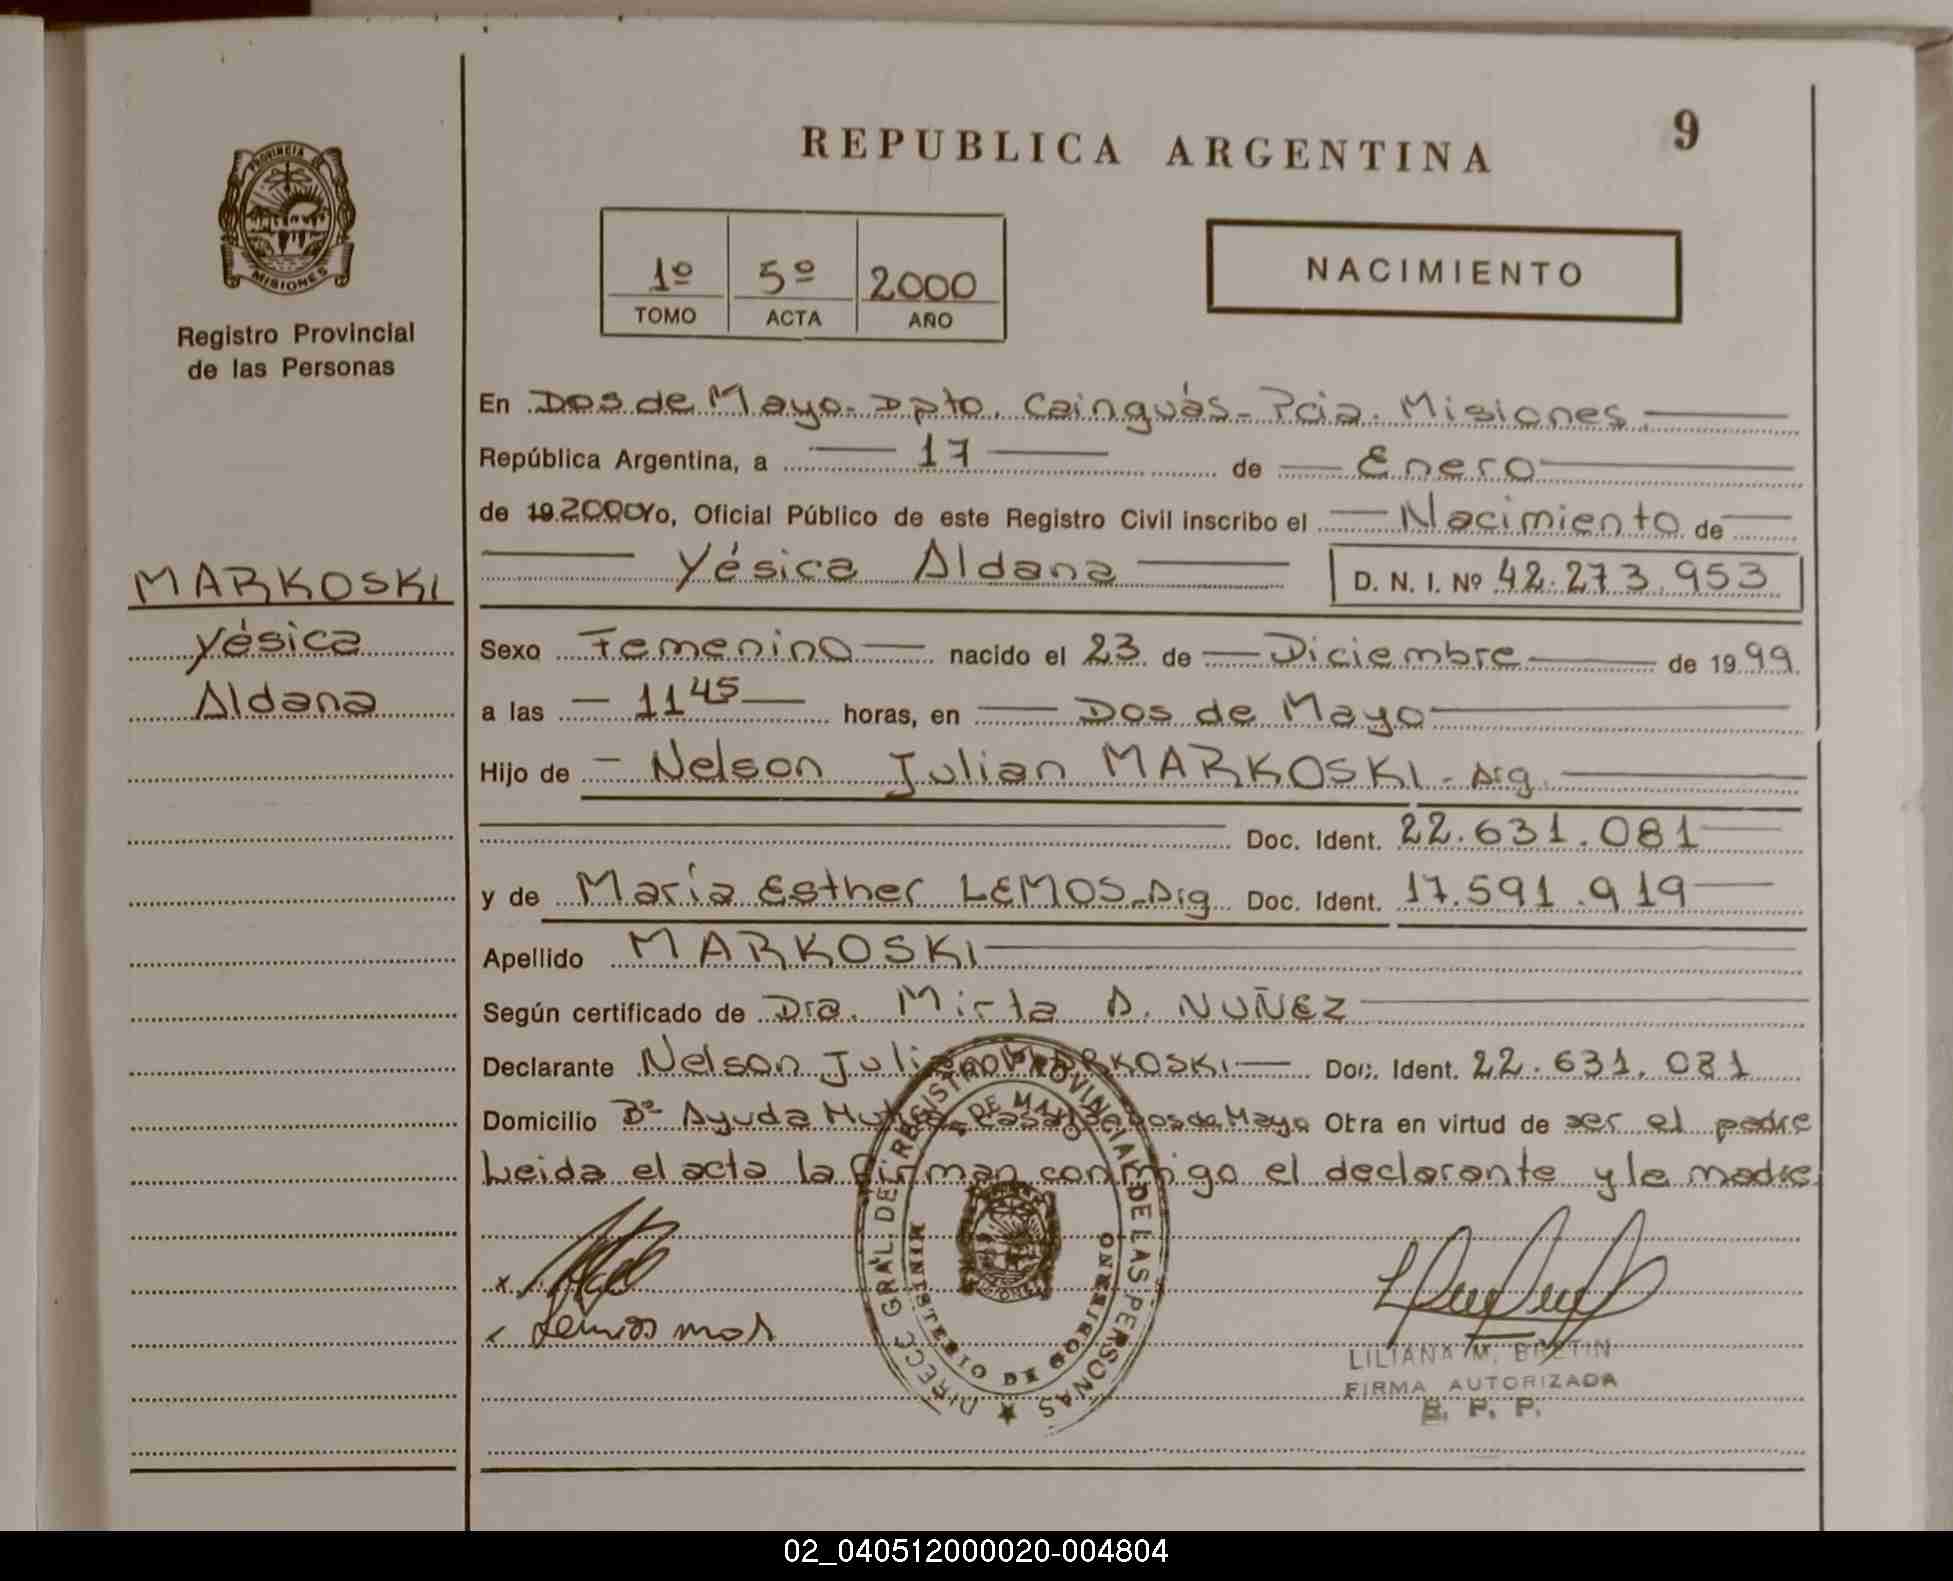 REPUBLICA ARGENTINA
9
PROVINCIA DE
MISIONES
Registro Provincial
de las Personas
1º 5º 2000
TOMO ACTA AÑO
NACIMIENTO
En Dos de Mayo. Dpto. Cainguás - Pcia. Misiones.
República Argentina, a 17 de Enero
de 19 2000 Yo, Oficial Público de este Registro Civil inscribo el Nacimiento de
Yésica Aldana D. N. I. Nº 42.273.953
MARKOSKI
Yésica
Aldana
Sexo Femenino nacido el 23 de Diciembre de 19 99
a las 11 45 horas, en Dos de Mayo
Hijo de Nelson Julian MARKOSKI - Arg.
Doc. Ident. 22.631.081
y de María Esther LEMOS - Arg Doc. Ident. 17.591.919
Apellido MARKOSKI
Según certificado de Dra. Mirta A. NUÑEZ
Declarante Nelson Julian MARKOSKI Doc. Ident. 22.631.081
Domicilio Bº Ayuda Mutua Dos de Mayo Obra en virtud de ser el padre
Leida el acta la firman conmigo el declarante y la madre
DIRECC GRAL. DEL REGISTRO PROVINCIAL DE LAS PERSONAS
DE MAYO
MINISTERIO DE GOBIERNO
LILIANA M. BRETIN
FIRMA AUTORIZADA
R. P. P.
02_040512000020-004804